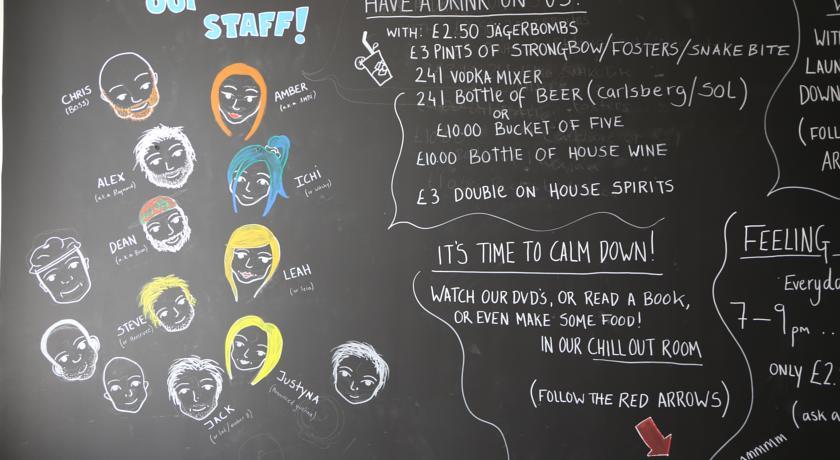 OUR
STAFF!
CHRIS
(BOSS)
AMBER
ALEX
ICHI
DEAN
LEAH
STEVE
JUSTYNA
JACK
HAVE A DRINK ON US!
WITH: £2.50 JÄGERBOMBS
£3 PINTS OF STRONGBOW/FOSTERS/SNAKE BITE
241 VODKA MIXER
241 Bottle of BEER (carlsberg/SOL)
OR
£10.00 BUCKET OF FIVE
£10.00 BOTTLE OF HOUSE WINE
£3 DOUBLE ON HOUSE SPIRITS
IT'S TIME TO CALM DOWN!
WATCH OUR DVD'S, OR READ A BOOK,
OR EVEN MAKE SOME FOOD!
IN OUR CHILLOUT ROOM
(FOLLOW THE RED ARROWS)
WIT
LAUN
DOWN
(FOLL
AR
FEELING
Everyda
7-9pm ..
ONLY £2
(ask a